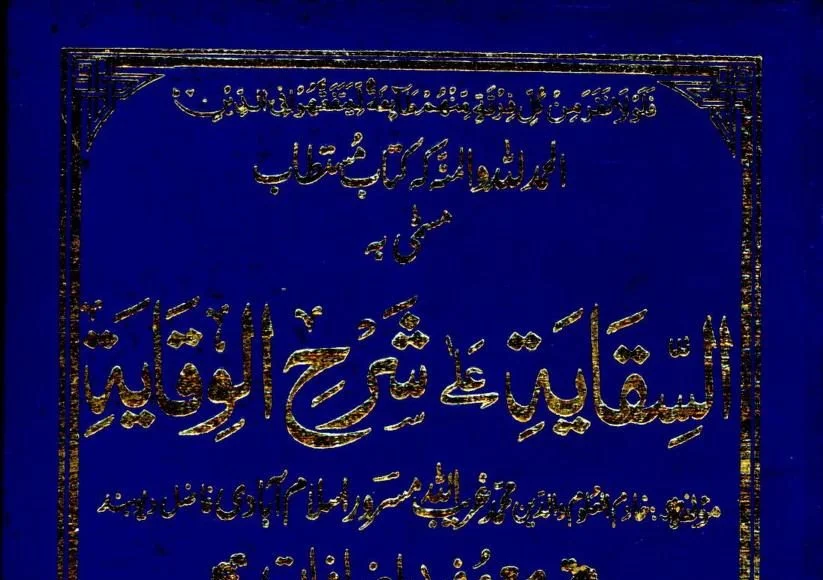 فَلَوْلَا نَفَرَ مِنْ كُلِّ فِرْقَةٍ مِنْهُمْ طَائِفَةٌ لِيَتَفَقَّهُوا فِي الدِّيْنِ
الحمد للہ والمنہ کہ کتاب مُستطاب
مسمّٰی بہ
السِّقَايَةِ عَلٰى شَرْحِ الْوِقَايَةِ
مؤلفہ: خادم العلوم والدین محمد غریب اللہ مسرور اسلام آبادی فاضل دیوبند